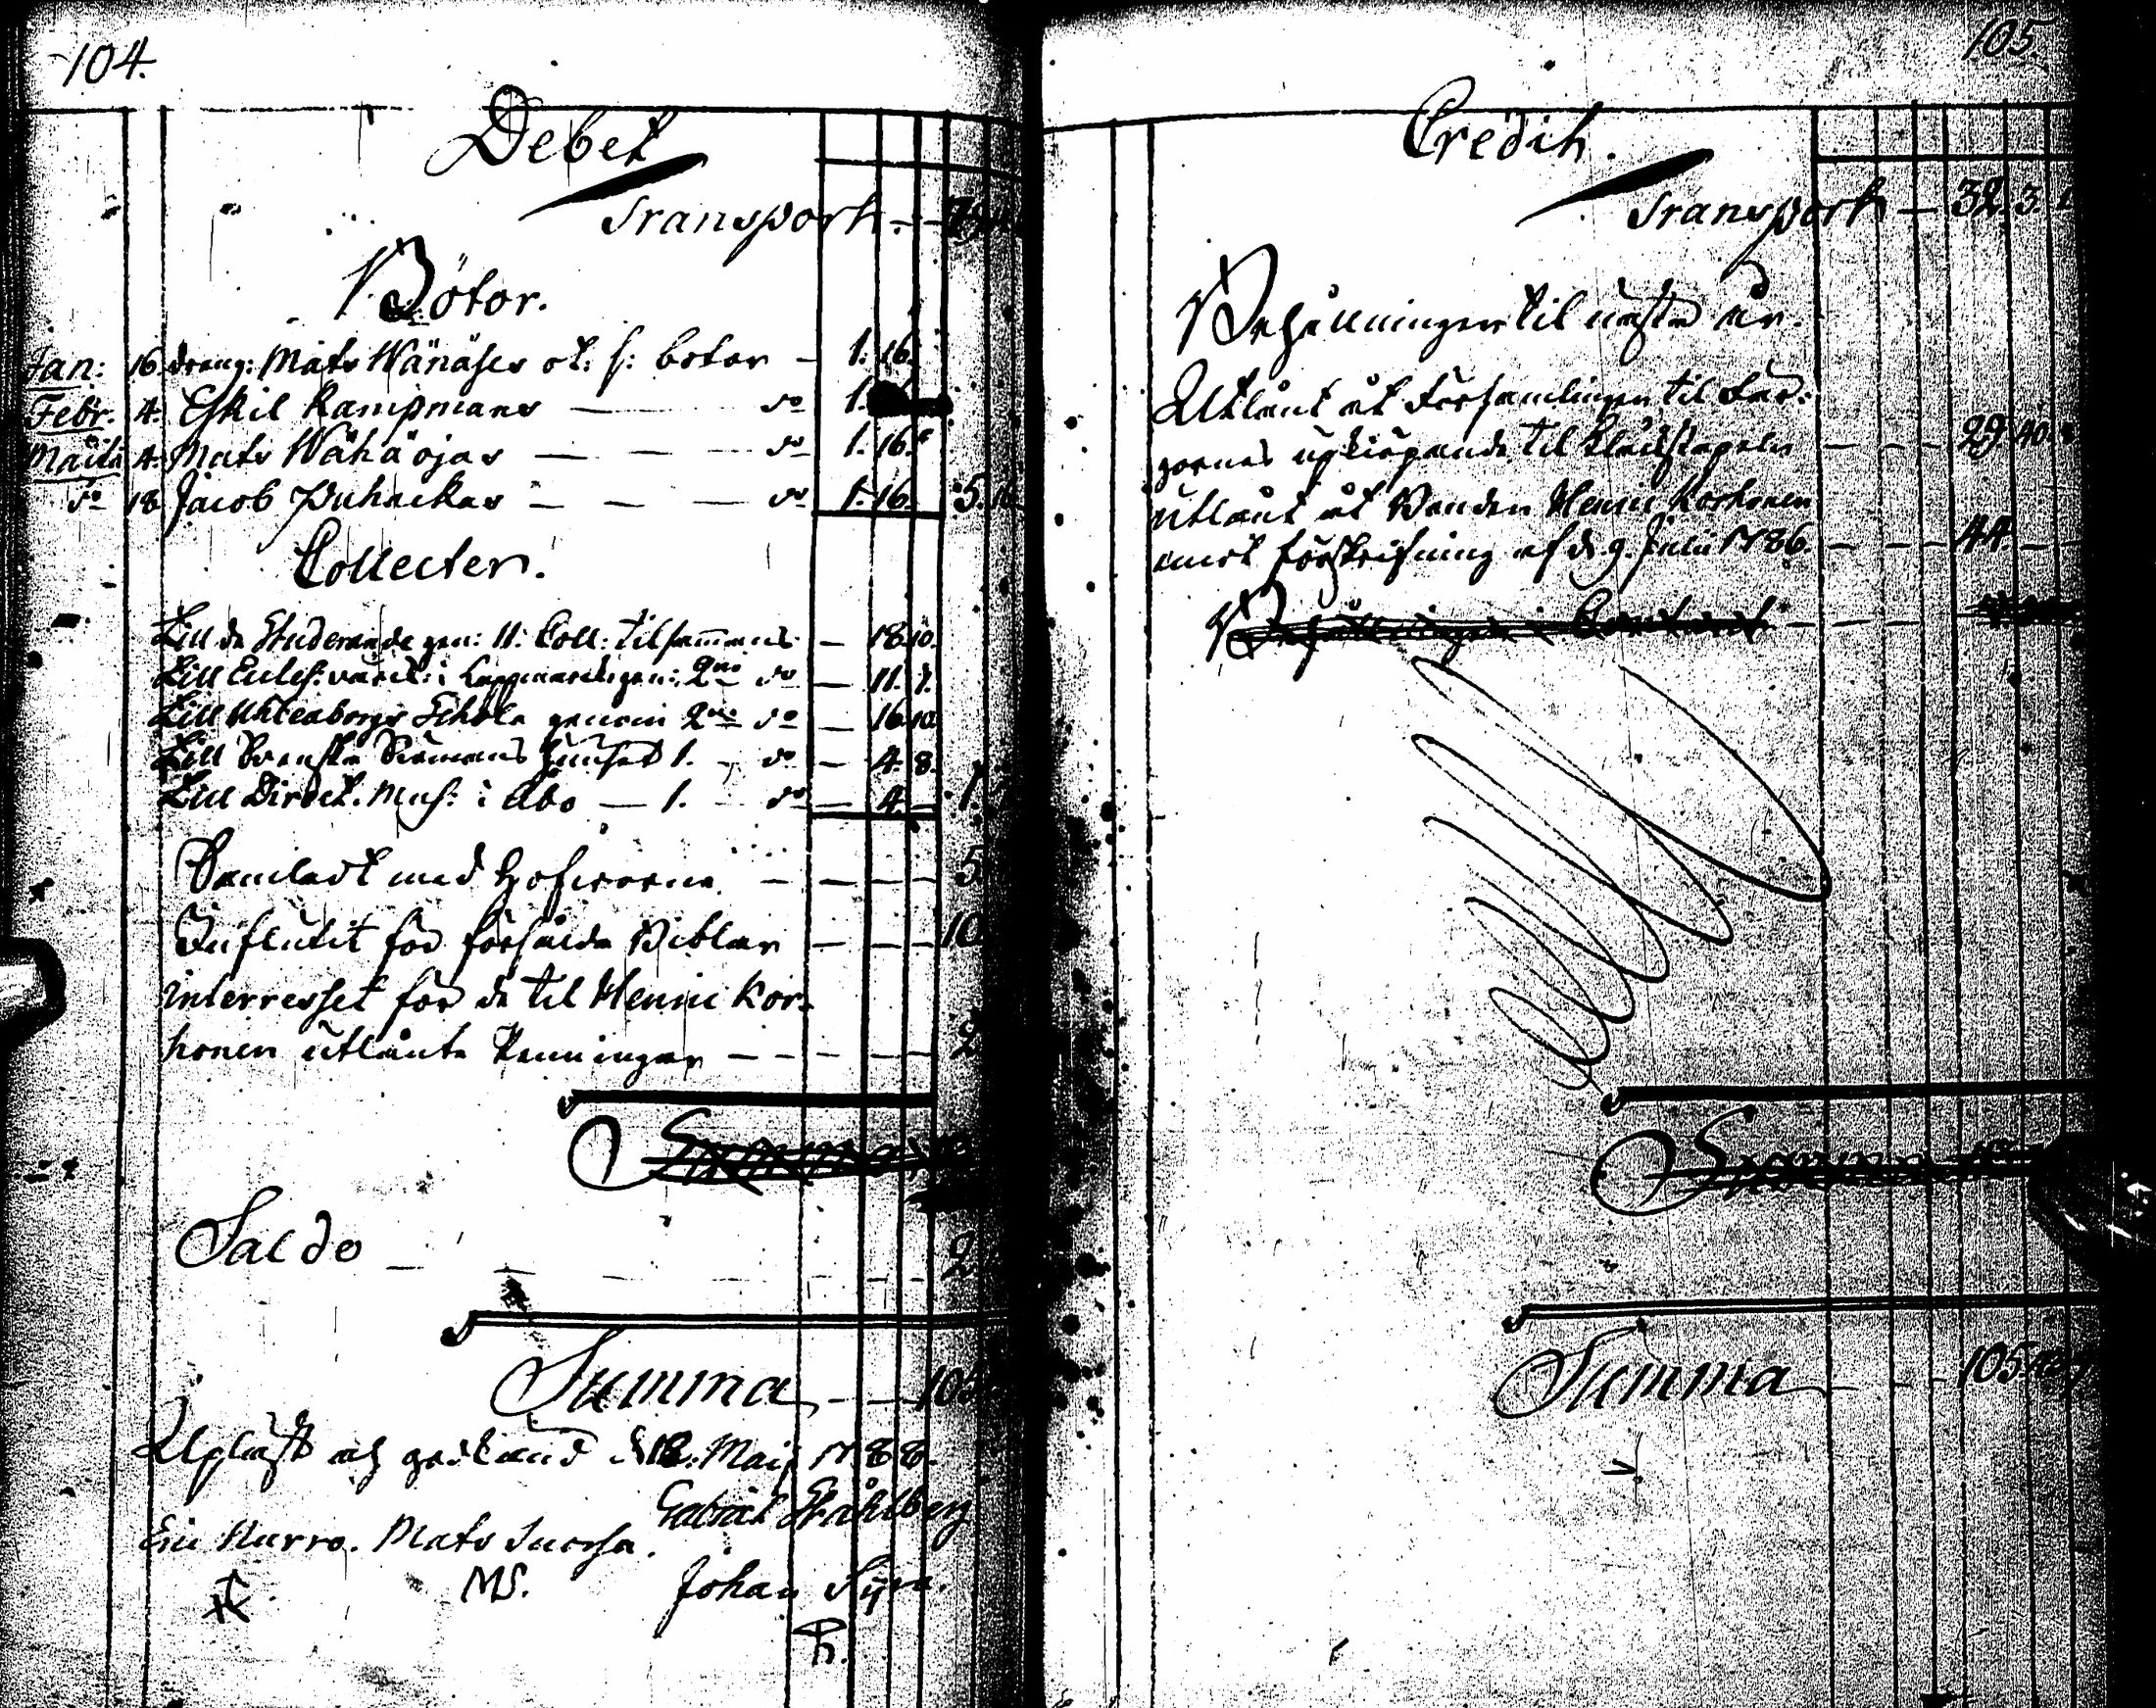 104.
Debet
Transport. — 79
Bötor.
Jan: 16 dräng: Mats Wänäses ol: s: böter — 1: 16.
Febr. 4. Eskil Kampmans — — do 1.
Martii 4. Mats Wähäojas — — — do 1. 16.
do 18 Jacob Puhackas — — — do 1: 16. 5. 16
Collecter.
Till de Studerande gen: 11: Coll: tilsammans — 18. 10.
Till Eccles: värd: i Lappmarck gen: 2ne do — 11. 7.
Till Uhleåborgs Schola genom 2ne do — 16. 10.
Till Svenska 1. — do — 4. 8.
Till Direct. Mus: i Åbo — 1. — do — 4. — 1.
Samladt med Hofvarne. — — — 5
Influtit för försålda Biblar — — — 10
interresset för de til Henric Kor-
honen utlånte Penningar — — — 2
Summa
Saldo — — — 2
Summa — — 105
Upläst och godkänd d. 18. Maij 1788.
Gabriel Ståhlberg
Eric Murro. Mats Suorsa.
MS. Johan
105.
Credit.
Transport — 32. 3.
Behållningen til nästa år.
Utlånt åt Församlingen til
upköpande til Klåckstapeln — — — 29. 40.
utlånt åt Bonden Henric Korhonen
emot förskrifning af d. 9. Julii 1786. — — — 44. — —
Behållningen i Contant — — —
Summa
Summa — — — 105.